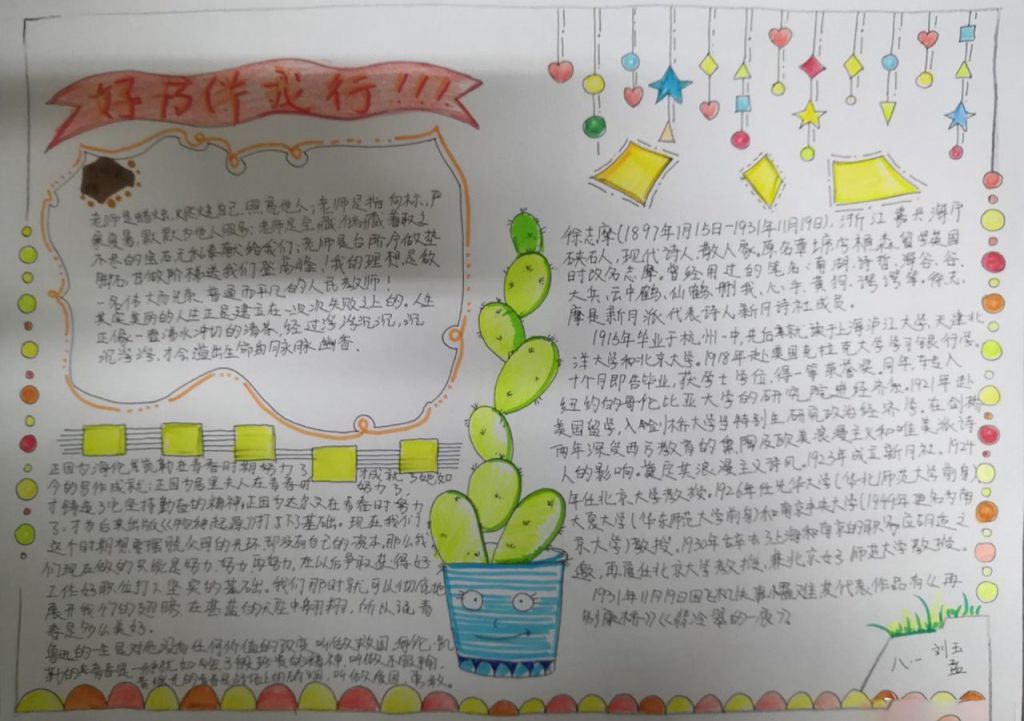 好书伴我行!!!
老师是蜡烛,燃烧自己,照亮他人;老师是指向标,尸
兼负着,默默为他人服务;老师是宝藏,倘藏着取之
不尽的宝石无私奉献给我们;老师是台阶,今做垫
脚石,甘做阶梯送我们登高峰!我的理想是做
一名伟大而光荣、普通而平凡的人民教师!
其实美丽的人生正是建立在一次次失败之上的,人生
正像一壶沸水冲切的清茶,经过浮浮沉沉,沉
沉浮浮,才会溢出生命的脉脉幽香.
正因为海伦凯勒在青春时期努力了 成就了她如
今的写作成就;正因为居里夫人在青春时 努力了,
才铸造了她坚持勤奋的精神;正因为达尔文在青春时努力
了,才为后来出版《物种起源》打下了基础。现在我们
这个时期想要摆脱父母的光环,却没有自己的资本,那么我
们现在做的只能是努力,努力再努力,在以后争取获得好
工作好职位打下坚实的基础,我们那时就可以彻底地
展开我们的翅膀,在湛蓝的天空中翱翔,所以说,青
春是多么美好.
徐志摩(1897年1月15日-1931年11月19日),浙江嘉兴海宁
硖石人,现代诗人、散文家。原名章垿,字槱森,留学英国
时改名志摩。曾经用过的笔名:南湖、诗哲、海谷、谷、
大兵、云中鹤、仙鹤、删我、心手、黄狗、谔谔等。徐志
摩是新月派代表诗人,新月诗社成员。
1915年毕业于杭州一中,先后就读于上海沪江大学、天津北
洋大学和北京大学。1918年赴美国克拉克大学学习银行学。
十个月即告毕业,获学士学位,得一等荣誉奖。同年,转入
纽约的哥伦比亚大学的研究院,进经济系。1921年赴
英国留学,入剑桥大学当特别生,研究政治经济学。在剑桥
两年深受西方教育的熏陶及欧美浪漫主义和唯美派诗
人的影响,奠定其浪漫主义诗风。1923年成立新月社。1924
年任北京大学教授。1926年任光华大学(华北师范大学前身)
大夏大学(华东师范大学前身)和南京中央大学(1949年更名为南
京大学)教授。1930年辞去了上海和南京的职务,应胡适之
邀,再度任北京大学教授,兼北京女子师范大学教授。
1931年11月19日因飞机失事罹难。其代表作品有《再
别康桥》《翡冷翠的一夜》
八.一 刘玉
孟